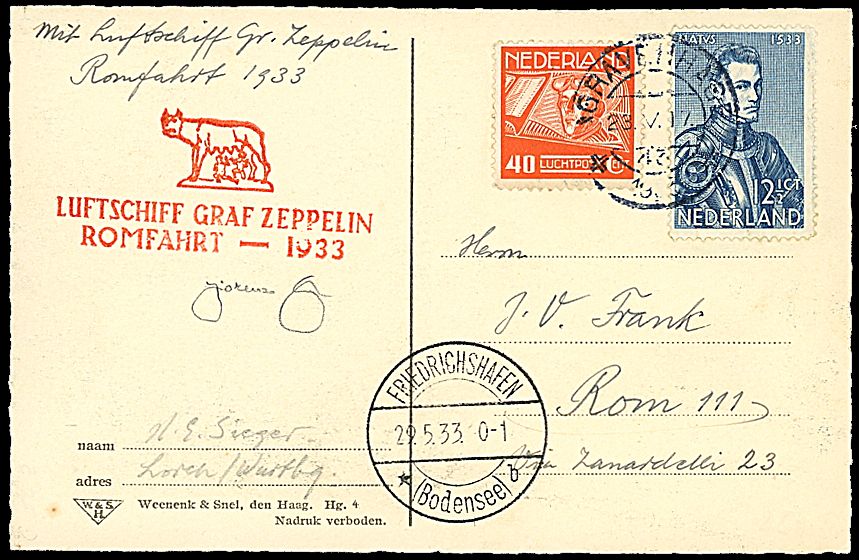 Mit Luftschiff Gr. Zeppelin
Romfahrt 1933
LUFTSCHIFF GRAF ZEPPELIN
ROMFAHRT — 1933
naam H. E. Sieger
adres Lorch/Württbg.
W. & S.
H.
Weenenk & Snel, den Haag. Hg. 4
Nadruk verboden.
NEDERLAND
40 LUCHTPO
NATVS 1533
12½ CT
NEDERLAND
Herrn
J. V. Frank
Rom 111
Via Zanardelli 23
FRIEDRICHSHAFEN
29.5.33. 0-1
* (Bodensee) b